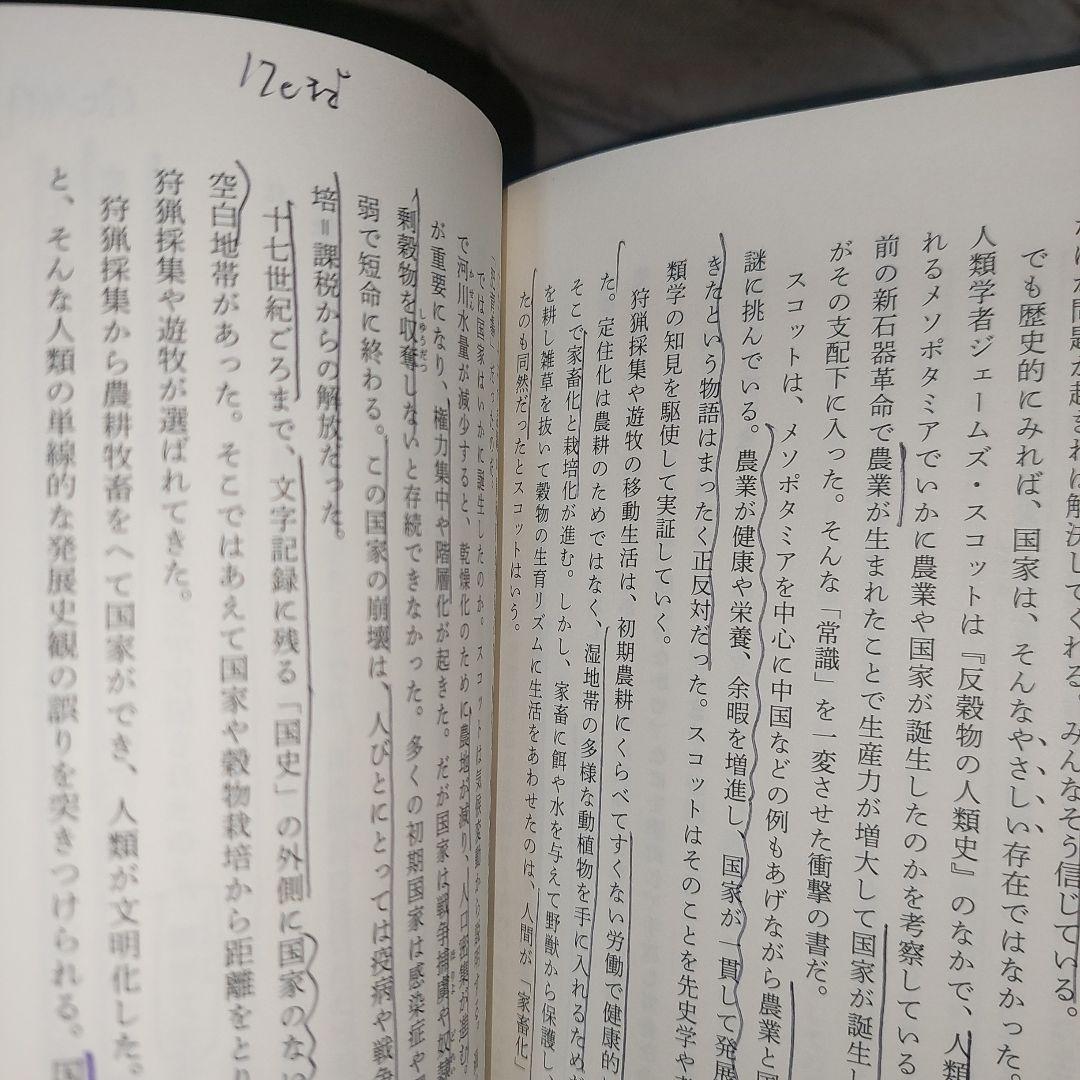 なにか問題が起きれば解決してくれる。みんなそう信じている。
でも歴史的にみれば、国家は、そんなやさしい存在ではなかった。
人類学者ジェームズ・スコットは『反穀物の人類史』のなかで、人類
れるメソポタミアでいかに農業や国家が誕生したのかを考察している
前の新石器革命で農業が生まれたことで生産力が増大して国家が誕生し
がその支配下に入った。そんな「常識」を一変させた衝撃の書だ。
スコットは、メソポタミアを中心に中国などの例もあげながら農業と国
謎に挑んでいる。農業が健康や栄養、余暇を増進し、国家が一貫して発展
きたという物語はまったく正反対だった。スコットはそのことを先史学や
類学の知見を駆使して実証していく。
狩猟採集や遊牧の移動生活は、初期農耕にくらべてすくない労働で健康的
た。定住化は農耕のためではなく、湿地帯の多様な動植物を手に入れるためだ
そこで家畜化と栽培化が進む。しかし、家畜に餌や水を与えて野獣から保護し、
を耕し雑草を抜いて穀物の生育リズムに生活をあわせたのは、人間が「家畜化」
たのも同然だったとスコットはいう。
17c まで
では国家はいかに誕生したのか。スコットは気候変動から説明する。
で河川水量が減少すると、乾燥化のために農地が減り、人口密集が進む。
が重要になり、権力集中や階層化が起きた。だが国家は戦争捕虜や奴隷
剰穀物を収奪しないと存続できなかった。多くの初期国家は感染症や
弱で短命に終わる。この国家の崩壊は、人びとにとっては疫病や戦争
培＝課税からの解放だった。
十七世紀ごろまで、文字記録に残る「国史」の外側に国家のない
空白地帯があった。そこではあえて国家や穀物栽培から距離をとり
狩猟採集や遊牧が選ばれてきた。
狩猟採集から農耕牧畜をへて国家ができ、人類が文明化した。
と、そんな人類の単線的な発展史観の誤りを突きつけられる。国